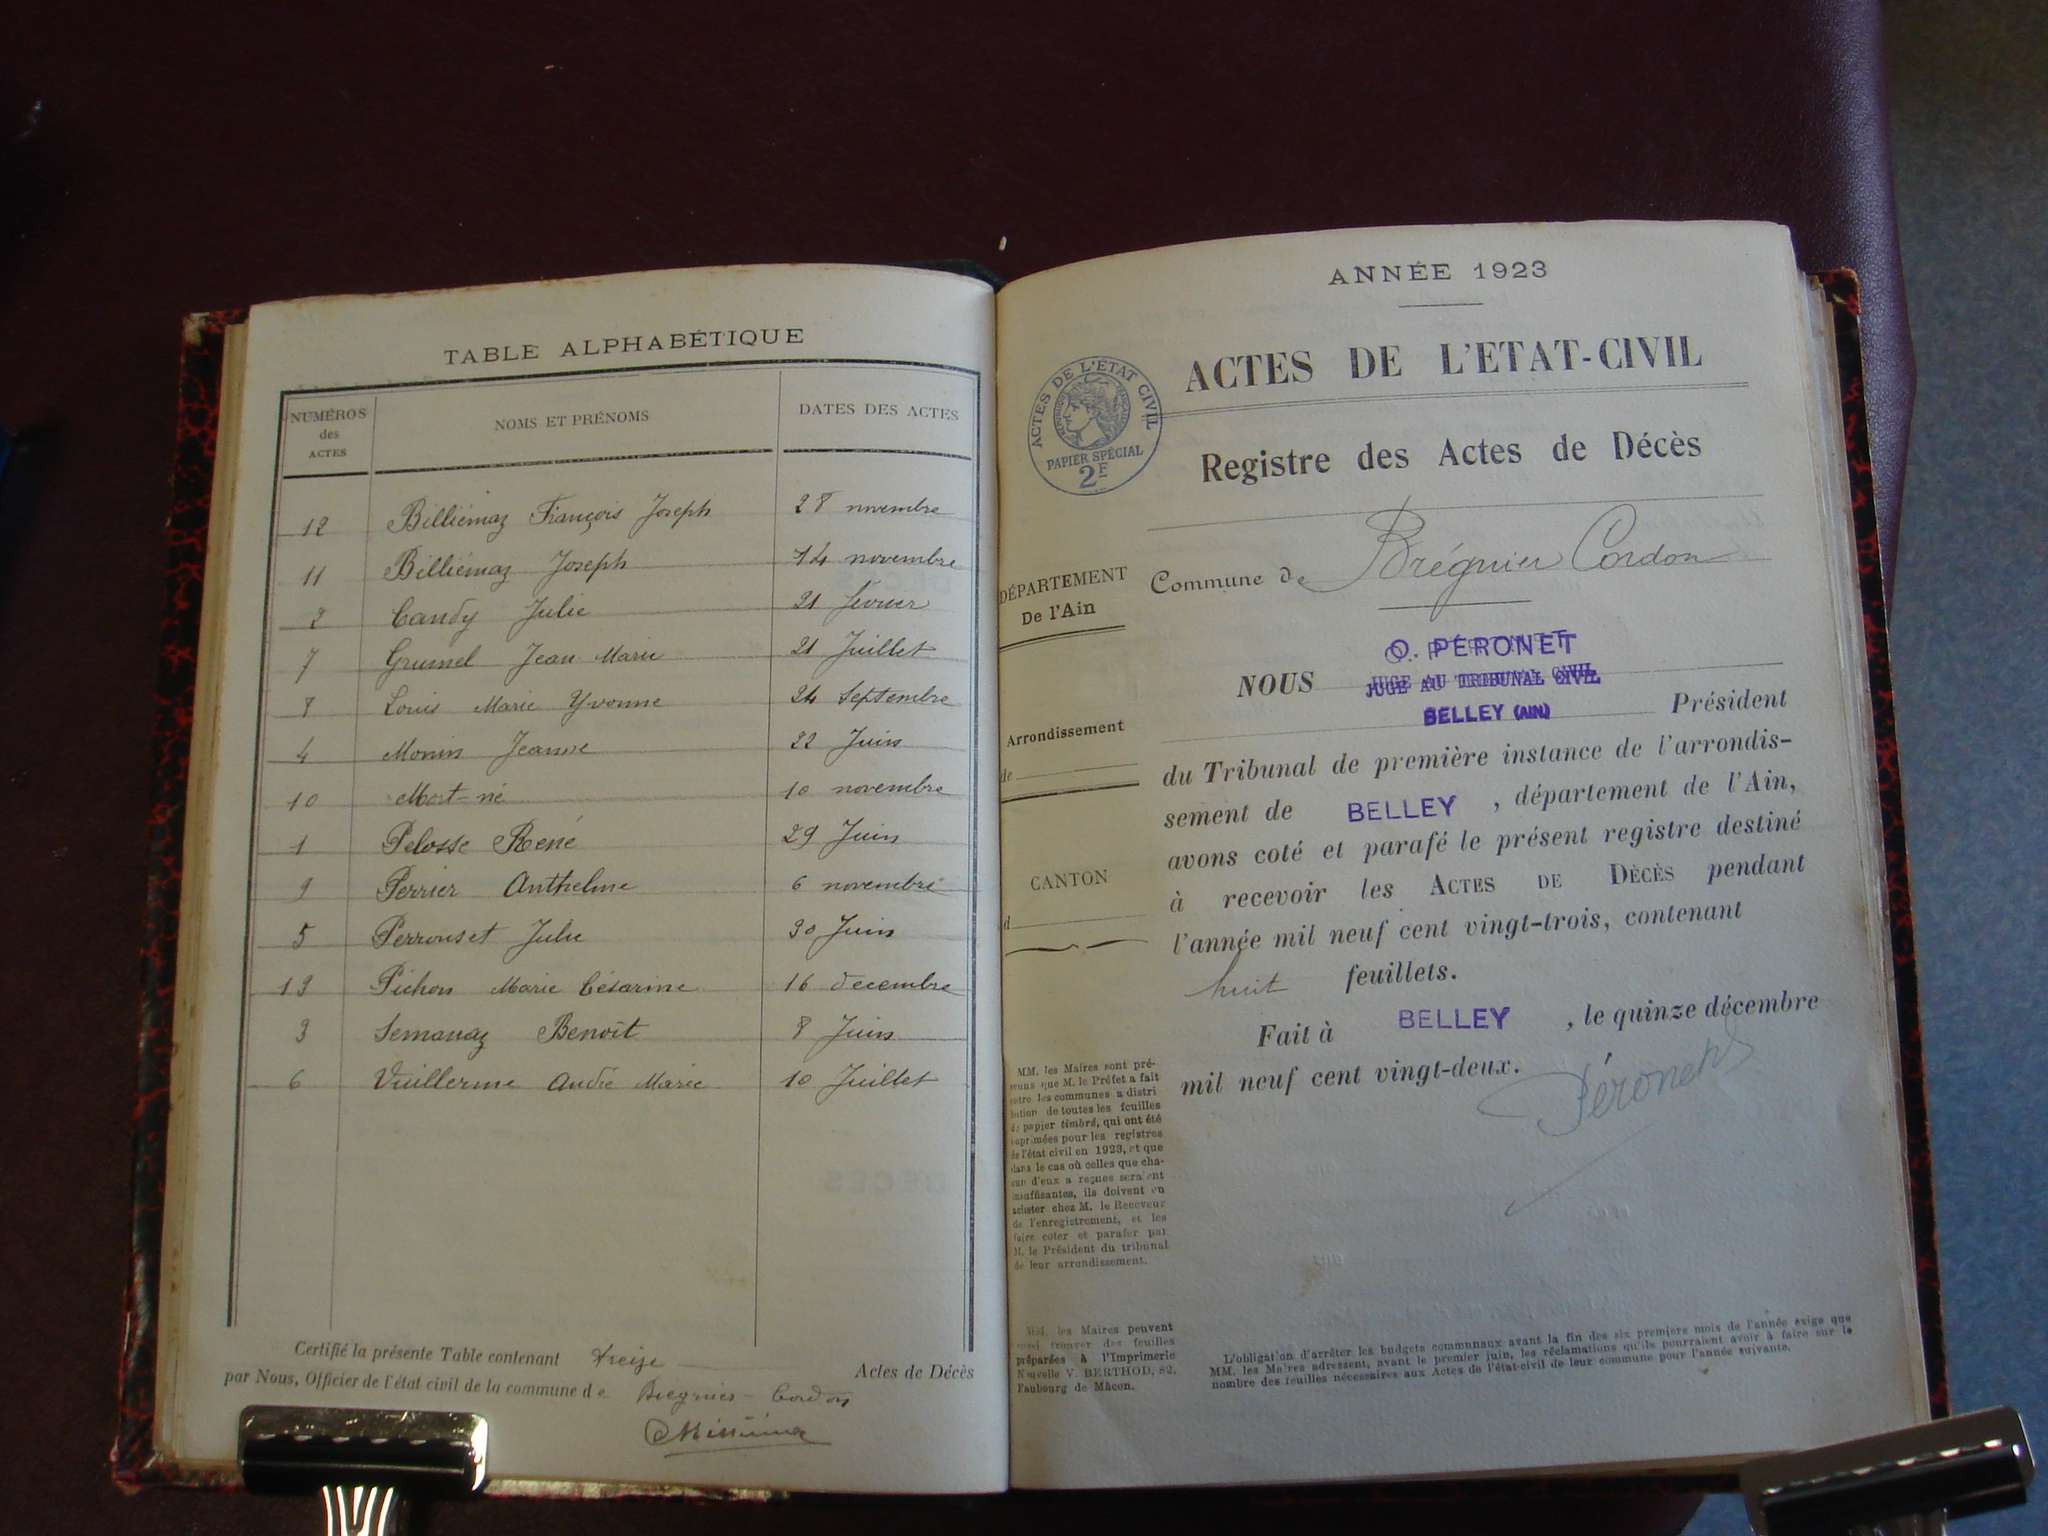 TABLE ALPHABÉTIQUE
NUMÉROS des ACTES NOMS ET PRÉNOMS DATES DES ACTES
12 Billiémaz François Joseph 28 novembre
11 Billiémaz Joseph 14 novembre
2 Candy Julie 21 février
7 Grumel Jean Marie 21 Juillet
8 Louis Marie Yvonne 24 Septembre
4 Monin Jeanne 22 Juin
10 Mort-né 10 novembre
1 Pelosse René 29 Juin
9 Perrier Anthelme 6 novembre
5 Perrousset Julie 30 Juin
13 Pichon Marie Césarine 16 décembre
3 Semanaz Benoît 8 Juin
6 Vuillerme André Marie 10 Juillet
Certifié la présente Table contenant treize Actes de Décès
par Nous, Officier de l'état civil de la commune de Brégnier-Cordon
ANNÉE 1923
ACTES DE L'ETAT-CIVIL
ACTES DE L'ÉTAT CIVIL
RÉPUBLIQUE FRANÇAISE
PAPIER SPÉCIAL
2F
Registre des Actes de Décès
DÉPARTEMENT
De l'Ain
Commune de Brégnier Cordon
Arrondissement
de
CANTON
d
O. PÉRONET
NOUS JUGE AU TRIBUNAL CIVIL
BELLEY (AIN) Président
du Tribunal de première instance de l'arrondis-
sement de BELLEY, département de l'Ain,
avons coté et parafé le présent registre destiné
à recevoir les ACTES DE DÉCÈS pendant
l'année mil neuf cent vingt-trois, contenant
huit feuillets.
Fait à BELLEY, le quinze décembre
mil neuf cent vingt-deux.
Péronet
MM. les Maires sont pré-
venus que M. le Préfet a fait
entre les communes a distri
bution de toutes les feuilles
de papier timbré, qui ont été
imprimées pour les registres
de l'état civil en 1923, et que
dans le cas où celles que cha-
cun d'eux a reçues seraient
insuffisantes, ils doivent en
acheter chez M. le Receveur
de l'enregistrement, et les
faire coter et parafer par
M. le Président du tribunal
de leur arrondissement.
MM. les Maires peuvent
aussi trouver des feuilles
préparées à l'Imprimerie
Nouvelle V. BERTHOD, 82,
Faubourg de Mâcon.
L'obligation d'arrêter les budgets communaux avant la fin des six premiers mois de l'année exige que
MM. les Maires adressent, avant le premier juin, les réclamations qu'ils pourraient avoir à faire sur le
nombre des feuilles nécessaires aux Actes de l'état-civil de leur commune pour l'année suivante.